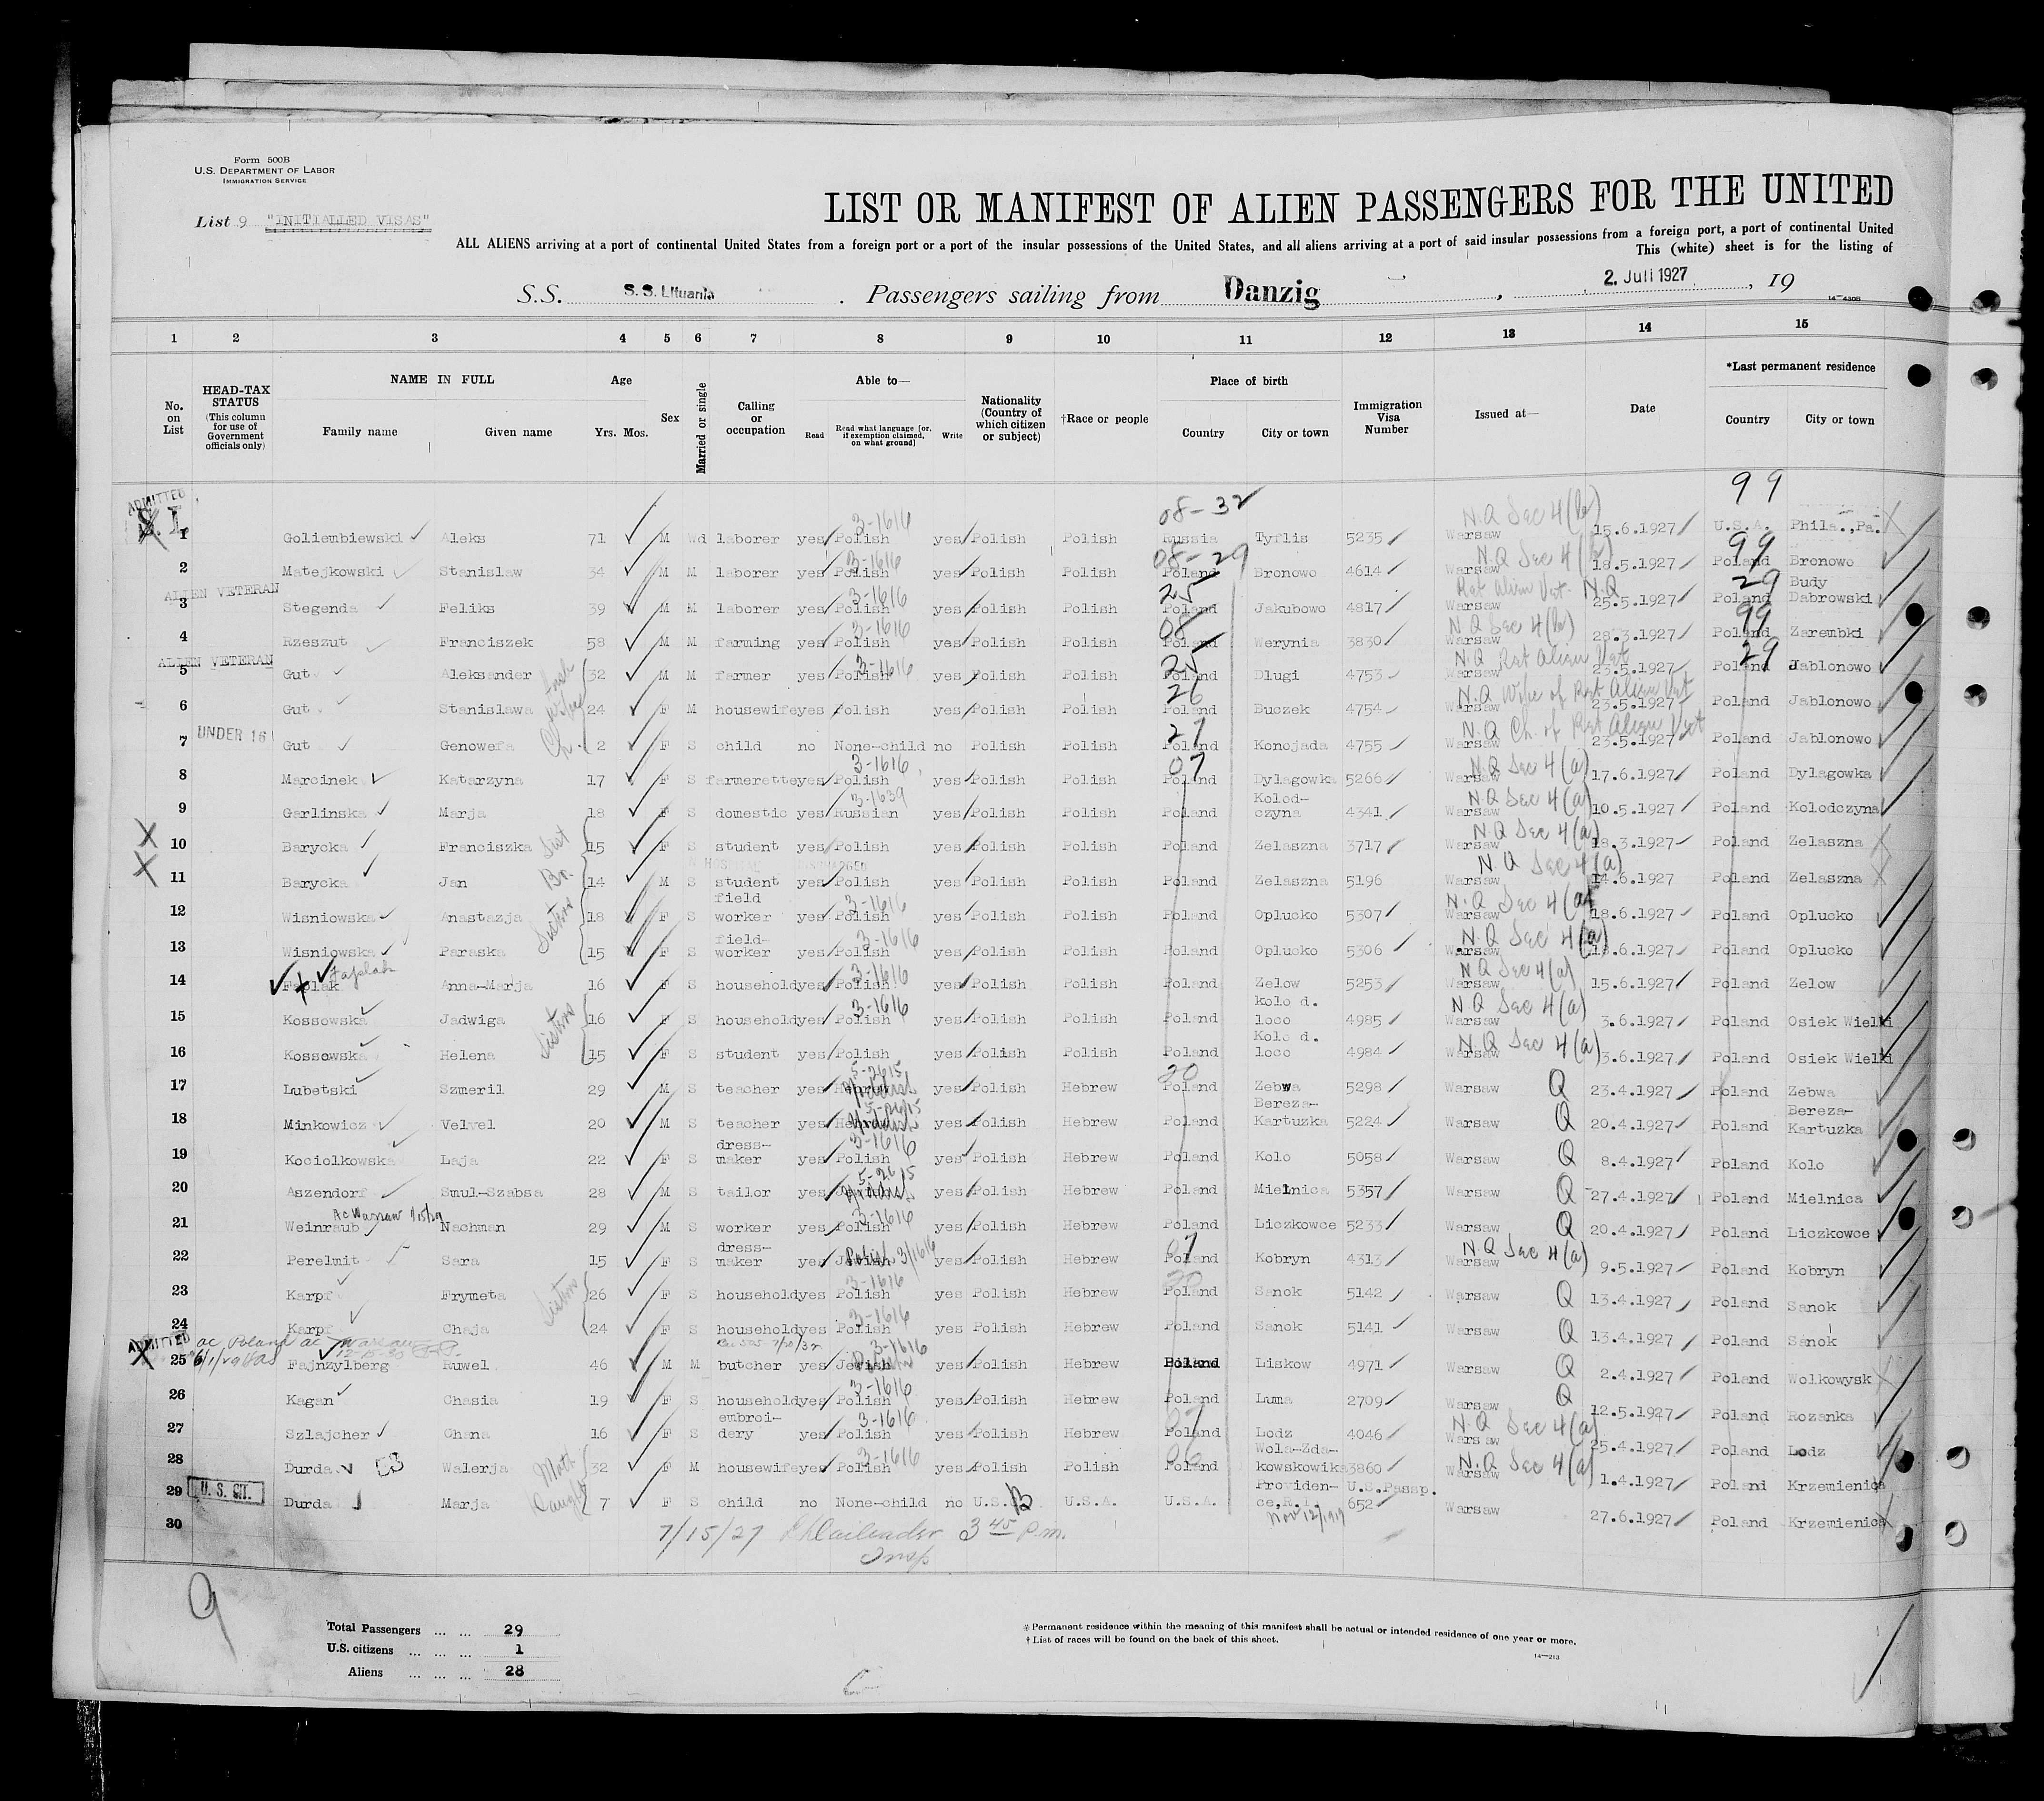 Form 500B
U.S. DEPARTMENT OF LABOR
IMMIGRATION SERVICE
List 9 "INITIALLED VISAS"
LIST OR MANIFEST OF ALIEN PASSENGERS FOR THE UNITED
ALL ALIENS arriving at a port of continental United States from a foreign port or a port of the insular possessions of the United States, and all aliens arriving at a port of said insular possessions from a foreign port, a port of continental United
This (white) sheet is for the listing of
S.S. S.S. Lituania. Passengers sailing from Danzig, 2. Juli 1927, 19
14-430B
1 2 3 4 5 6 7 8 9 10 11 12 13 14 15
No. on List HEAD-TAX STATUS (This column for use of Government officials only) NAME IN FULL Family name Given name Age Yrs. Mos. Sex Married or single Calling or occupation Able to— Read Read what language [or, if exemption claimed, on what ground] Write Nationality (Country of which citizen or subject) †Race or people Place of birth Country City or town Immigration Visa Number Issued at— Date *Last permanent residence Country City or town
ADMITTED S.I. 08-32 99
1 Goliembiewski Aleks 71 M Wd laborer yes Polish 3-1616 yes Polish Polish Russia Tyflis 5235 Warsaw N.Q Sec 4(b) 15.6.1927 U.S.A. Phila.,Pa.
2 Matejkowski Stanislaw 34 M M laborer yes Polish 3-1616 yes Polish Polish Poland 08-29 Bronowo 4614 Warsaw N.Q Sec 4(b) 18.5.1927 Poland 99 Bronowo
3 ALIEN VETERAN Stegenda Feliks 39 M M laborer yes Polish 3-1616 yes Polish Polish Poland 25 Jakubowo 4817 Warsaw Ret Alien Vet. N.Q 25.5.1927 Poland 29 Budy Dabrowski
4 Rzeszut Franciszek 58 M M farming yes Polish 3-1616 yes Polish Polish Poland 08 Werynia 3830 Warsaw N.Q Sec 4(b) 28.3.1927 Poland 99 Zarembki
5 ALIEN VETERAN Gut Aleksander 32 M M farmer yes Polish 3-1616 yes Polish Polish Poland 25 Dlugi 4753 Warsaw N.Q Ret Alien Vet 23.5.1927 Poland 29 Jablonowo
6 Gut Stanislawa 24 F M housewife yes Polish yes Polish Polish Poland 26 Buczek 4754 Warsaw N.Q Wife of Ret Alien Vet 23.5.1927 Poland Jablonowo
7 UNDER 16 Gut Genowefa 2 F S child no None-child no Polish Polish Poland 27 Konojada 4755 Warsaw N.Q Ch. of Ret Alien Vet 23.5.1927 Poland Jablonowo
8 Marcinek Katarzyna 17 F S farmerette yes Polish 3-1616 yes Polish Polish Poland 07 Dylagowka 5266 Warsaw N.Q Sec 4(a) 17.6.1927 Poland Dylagowka
9 Garlinska Marja 18 F S domestic yes Russian 3-1639 yes Polish Polish Poland Kolod-czyna 4341 Warsaw N.Q Sec 4(a) 10.5.1927 Poland Kolodczyna
10 Barycka Franciszka 15 F S student yes Polish yes Polish Polish Poland Zelaszna 3717 Warsaw N.Q Sec 4(a) 18.3.1927 Poland Zelaszna
11 Barycka Jan 14 M S student yes Polish yes Polish Polish Poland Zelaszna 5196 Warsaw N.Q Sec 4(a) 14.6.1927 Poland Zelaszna
12 Wisniowska Anastazja Sisters 18 F S field worker yes Polish 3-1616 yes Polish Polish Poland Oplucko 5307 Warsaw N.Q Sec 4(a) 18.6.1927 Poland Oplucko
13 Wisniowska Paraska 15 F S field-worker yes Polish 3-1616 yes Polish Polish Poland Oplucko 5306 Warsaw N.Q Sec 4(a) 18.6.1927 Poland Oplucko
14 Anna-Marja 16 F S household yes Polish 3-1616 yes Polish Polish Poland Zelow 5253 Warsaw N.Q Sec 4(a) 15.6.1927 Poland Zelow
15 Kossowska Jadwiga Sisters 16 F S household yes Polish 3-1616 yes Polish Polish Poland kolo d. loco 4985 Warsaw N.Q Sec 4(a) 3.6.1927 Poland Osiek Wielki
16 Kossowska Helena 15 F S student yes Polish yes Polish Polish Poland Kolo d. loco 4984 Warsaw N.Q Sec 4(a) 3.6.1927 Poland Osiek Wielki
17 Lubetski Szmeril 29 M S teacher yes 5-2615 yes Polish Hebrew Poland 20 Zebwa 5298 Warsaw Q 23.4.1927 Poland Zebwa
18 Minkowicz Velvel 20 M S teacher yes 5-2615 yes Polish Hebrew Poland Bereza-Kartuzka 5224 Warsaw Q 20.4.1927 Poland Bereza-Kartuzka
19 Kociolkowska Laja 22 F S dress-maker yes Polish 3-1616 yes Polish Hebrew Poland Kolo 5058 Warsaw Q 8.4.1927 Poland Kolo
20 Aszendorf Smul-Szabsa 28 M S tailor yes 5-2615 yes Polish Hebrew Poland Mielnica 5357 Warsaw Q 27.4.1927 Poland Mielnica
21 Weinraub Nachman 29 M S worker yes Polish 3-1616 yes Polish Hebrew Poland Liczkowce 5233 Warsaw Q 20.4.1927 Poland Liczkowce
22 Perelmit Sara 15 F S dress-maker yes Polish 3/1616 yes Polish Hebrew Poland 07 Kobryn 4313 Warsaw N.Q Sec 4(a) 9.5.1927 Poland Kobryn
23 Karpf Frymeta Sisters 26 F S household yes Polish 3-1616 yes Polish Hebrew Poland 20 Sanok 5142 Warsaw Q 13.4.1927 Poland Sanok
24 Karpf Chaja 24 F S household yes Polish 3-1616 yes Polish Hebrew Poland Sanok 5141 Warsaw Q 13.4.1927 Poland Sanok
25 ADMITTED Fajnzylberg Ruwel 46 M M butcher yes 3-1616 yes Polish Hebrew Poland Liskow 4971 Warsaw Q 2.4.1927 Poland Wolkowysk
26 Kagan Chasia 19 F S household yes Polish 3-1616 yes Polish Hebrew Poland Luma 2709 Warsaw Q 12.5.1927 Poland Rozanka
27 Szlajcher Chana 16 F S embroi-dery yes Polish 3-1616 yes Polish Hebrew Poland 07 Lodz 4046 Warsaw N.Q Sec 4(a) 25.4.1927 Poland Lodz
28 Durda Walerja 32 F M housewife yes Polish 3-1616 yes Polish Polish Poland 06 Wola-Zda-kowskowika 3860 Warsaw N.Q Sec 4(a) 1.4.1927 Poland Krzemienica
29 U.S. CIT. Durda Marja 7 F S child no None-child no U.S. U.S.A. U.S.A. Providen-ce,R.I. Nov 12/1919 U.S.Passp. 652 Warsaw 27.6.1927 Poland Krzemienica
30 7/15/27 3 45 P.m.
Insp
9
Total Passengers ... ... 29
U.S. citizens ... ... ... 1
Aliens ... ... ... 28
* Permanent residence within the meaning of this manifest shall be actual or intended residence of one year or more.
† List of races will be found on the back of this sheet.
14-213